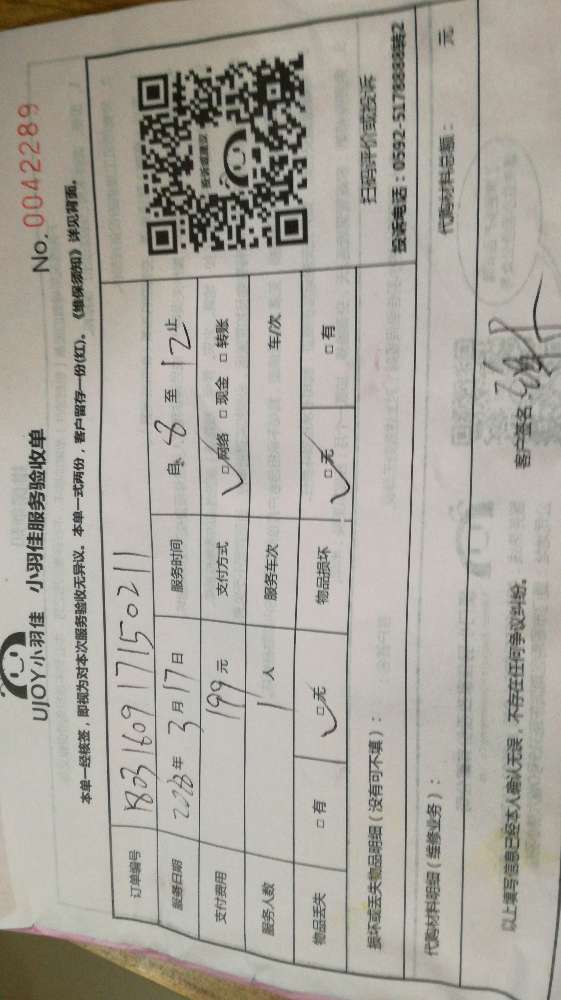 UJOY小羽佳 小羽佳服务验收单
No. 0042289
本单一经核签，即视为对本次服务验收无异议。本单一式两份，客户留存一份(红)。《维保须知》详见背面。
订单编号 1803160917150211
服务日期 2018年 3月 17日 服务时间 自 8 至 12 止
支付费用 199 元 支付方式 ☑网络 □现金 □转账
服务人数 1 人 服务车次 车/次
物品丢失 □有 ☑无 物品损坏 ☑无 □有
投诉或建议
扫码评价或投诉
投诉电话：0592-5178888转2
损坏或丢失物品明细（没有可不填）：
代购材料明细（维修业务）： 代购材料总额： 元
以上填写信息已经本人确认无误，不存在任何争议纠纷。 客户签名：